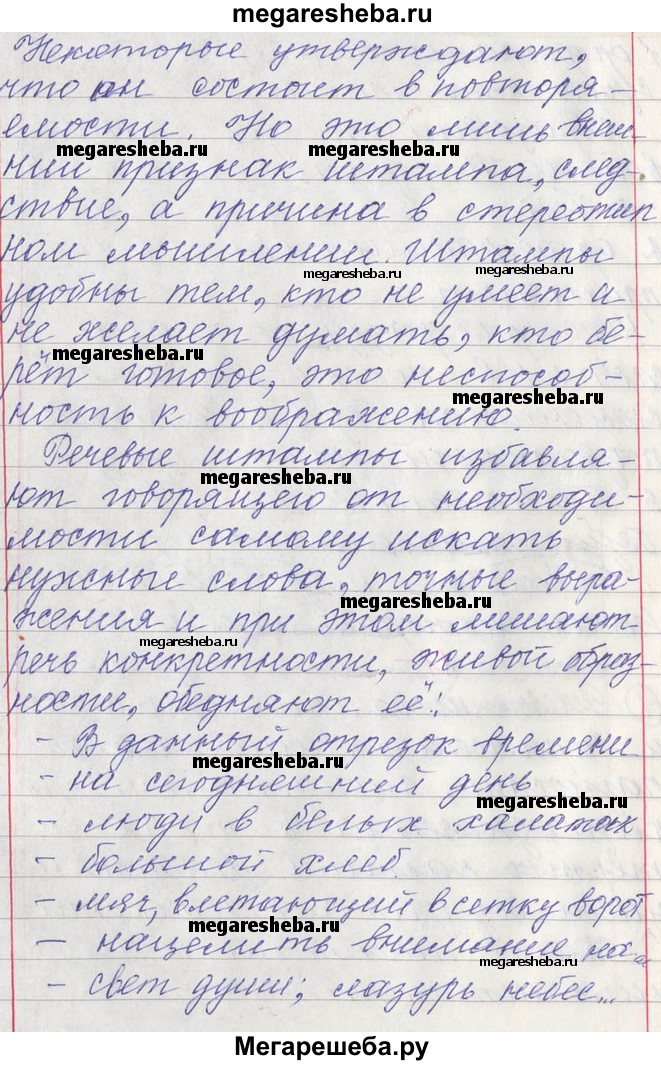 megaresheba.ru
Некоторые утверждают,
что он состоит в повторя-
емости. Но это лишь внеш-
megaresheba.ru megaresheba.ru
ний признак штампа, след-
ствие, а причина в стереотип
ном мышлении. Штампы
megaresheba.ru megaresheba.ru
удобны тем, кто не умеет и
не желает думать, кто бе-
megaresheba.ru
рёт готовое, это неспособ-
megaresheba.ru
ность к воображению.
Речевые штампы избавля-
megaresheba.ru
ют говорящего от необходи-
мости самому искать
нужные слова, точные выра-
megaresheba.ru
жения и при этом лишают
megaresheba.ru
речь конкретности, живой образ-
ности, обедняют её:
- В данный отрезок времени
- на сегодняшний день
megaresheba.ru
- люди в белых халатах
- большой хлеб.
- мяч, влетающий в сетку ворот
megaresheba.ru
- нацелить внимание на...
megaresheba.ru
- свет души; лазурь небес...
Мегарешеба.ру